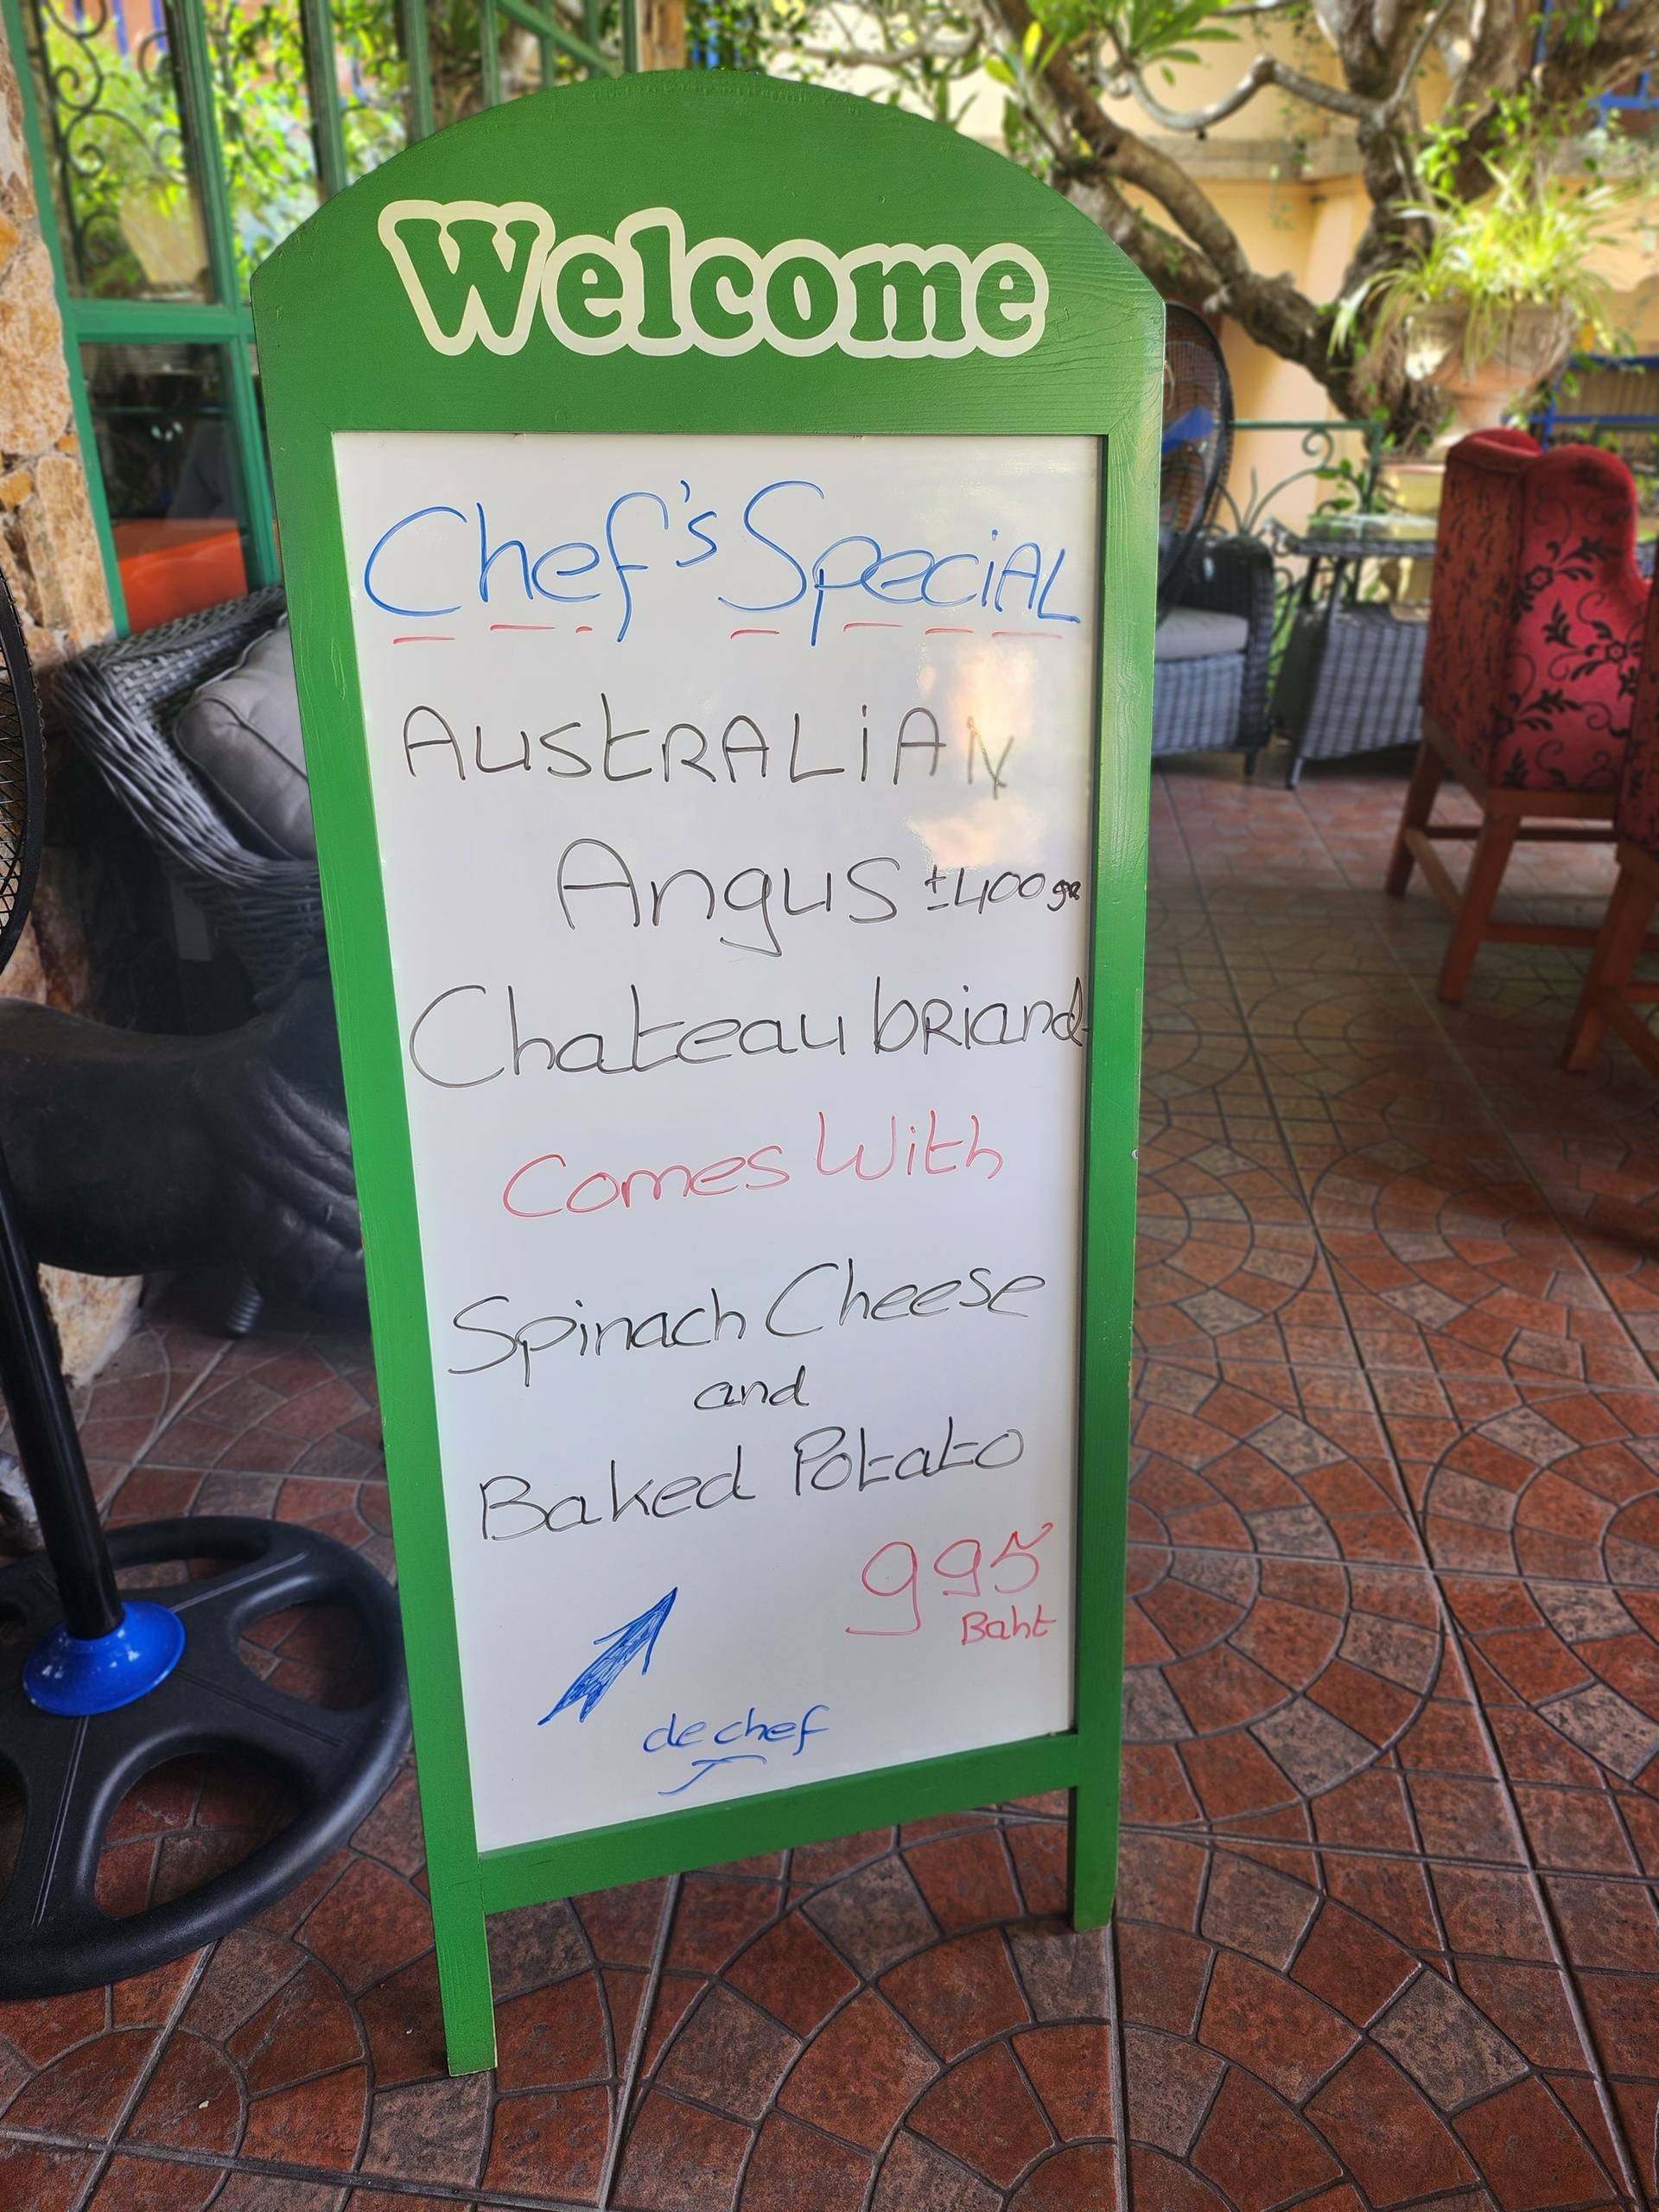 Welcome
Chef's Special
AUStRALiAN
Angus ±400gr
Chateaubriand
Comes With
Spinach Cheese
and
Baked Potato
995
Baht
de chef